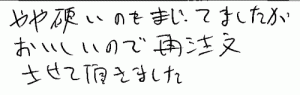 やや硬いのをまじてましたが
おいしいので再注文
させて頂きました